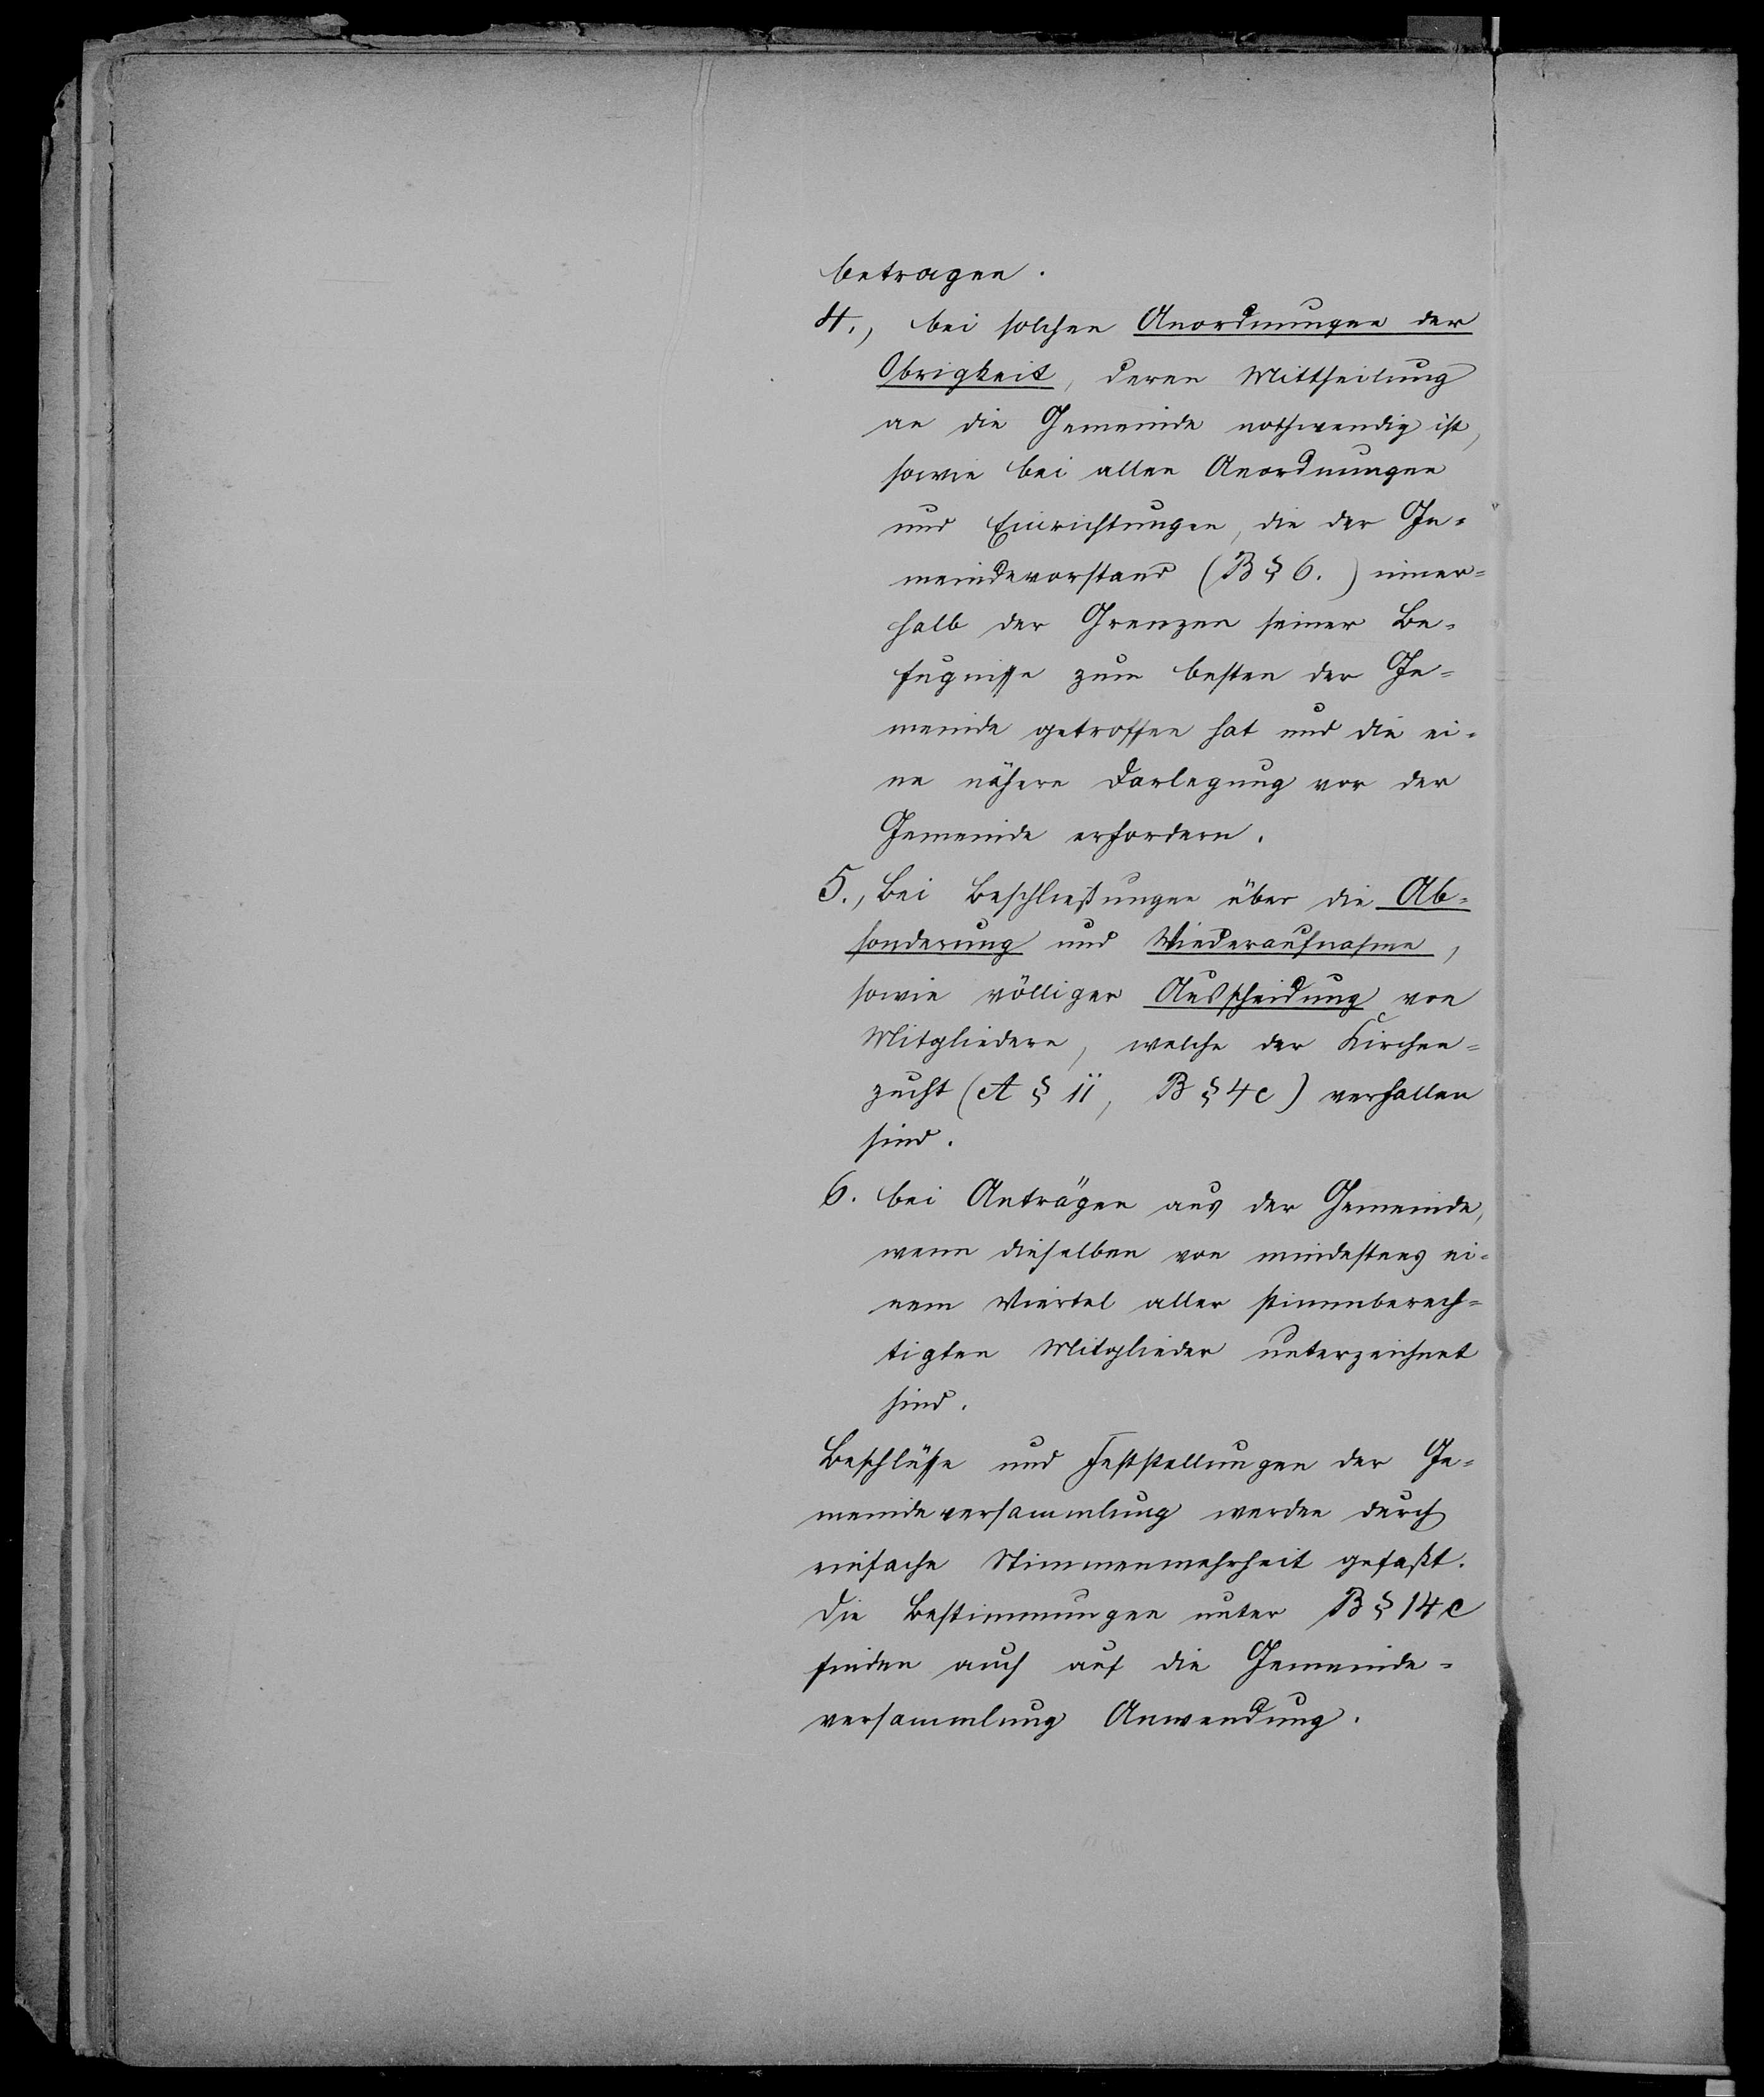 betragen.
4., bei solchen Anordnungen der
Obrigkeit, deren Mittheilung
an die Gemeinde nothwendig ist,
sowie bei allen Anordnungen
und Einrichtungen, die der Ge-
meindevorstand (B § 6.) inner-
halb der Grenzen seiner Be-
fugnisse zum besten der Ge-
meinde getroffen hat und die ei-
ne nähere Darlegung vor der
Gemeinde erfordern.
5., Bei Beschließungen über die Ab-
sonderung und Wiederaufnahme,
sowie völliger Ausscheidung von
Mitgliedern, welche der Kirchen-
zucht (A § 11, B § 4c) verfallen
sind.
6. bei Anträgen aus der Gemeinde,
wenn dieselben von mindestens ei-
nem Viertel aller stimmberech-
tigten Mitglieder unterzeichnet
sind.
Beschlüsse und Feststellungen der Ge-
meindeversammlung werden durch
einfache Stimmenmehrheit gefaßt.
Die Bestimmungen unter B § 14 c
finden auch auf die Gemeinde-
versammlung Anwendung.